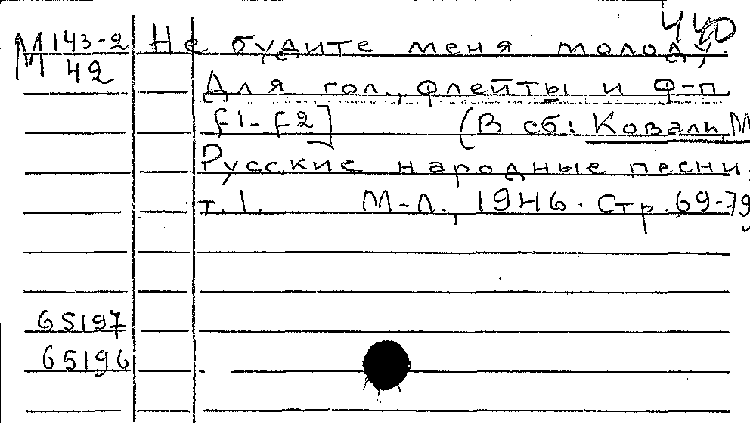 440
М 143-2 Не будите меня молод,
42 Для гол., флейты и ф-п
f1-f2] (В сб: Коваль, М
Русские народные песни.
т.1. М-Л., 1946. Стр. 69-79
65197
65196